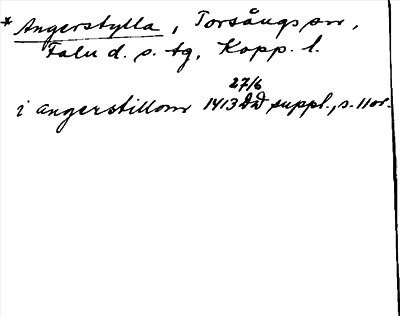 * Angerstylla, Torsångs sn,
Falu d. s. tg, Kopp. l.
27/6
i angerstillom 1413 DD suppl., s. 11 or.